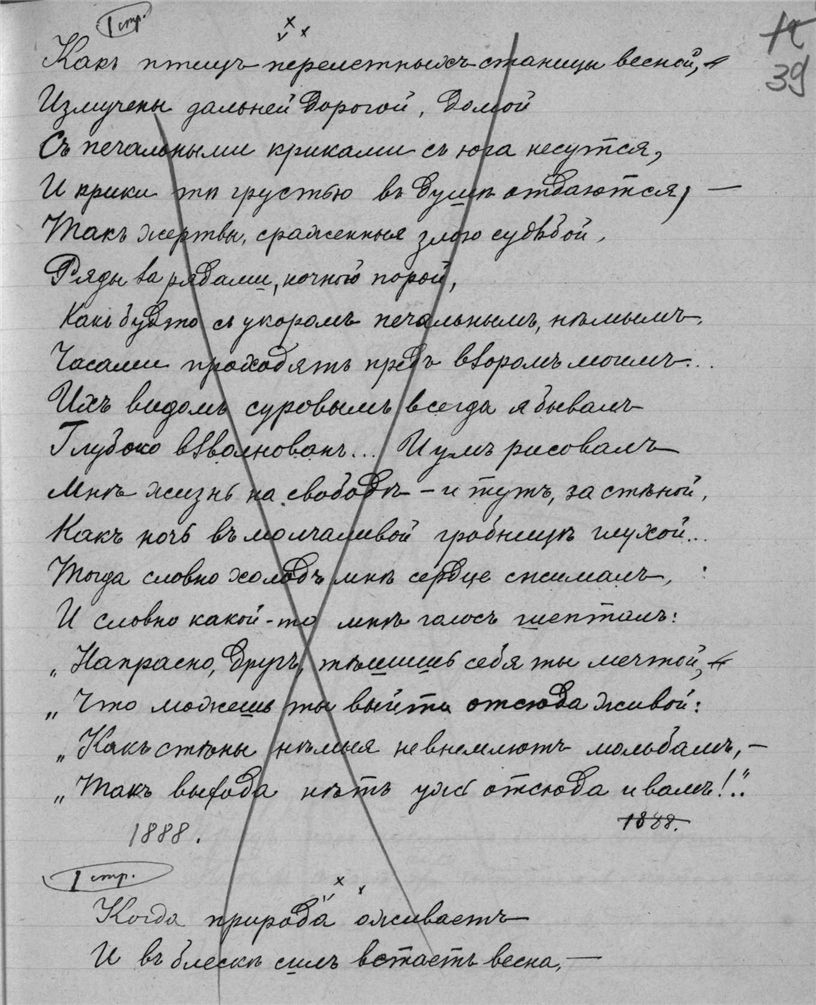 1 стр.
12
39
Какъ птицъ перелетныхъ станицы весной,
Измучены дальней дорогой, домой
Съ печальными криками съ юга несутся,
И крики тѣ грустью въ душѣ отдаются, —
Такъ жертвы, сраженныя злою судьбой,
Ряды за рядами, ночною порой,
Какъ будто съ укоромъ печальнымъ, нѣмымъ,
Часами проходятъ предъ взоромъ моимъ...
Ихъ видомъ суровымъ всегда я бывалъ
Глубоко взволнованъ... И умъ рисовалъ
Мнѣ жизнь на свободѣ – и тутъ, за стѣной,
Какъ ночь въ молчаливой гробницѣ глухой...
Тогда словно холодъ мнѣ сердце сжималъ,
И словно какой-то мнѣ голосъ шепталъ:
„Напрасно, другъ, тѣшишь себя ты мечтой,
„Что можешь ты выйти отсюда живой:
„Какъ стѣны нѣмыя не внемлютъ мольбамъ, –
„Такъ выхода нѣтъ ужъ отсюда и вамъ!.."
1888.
1888.
1 стр.
Когда природа оживаетъ
И въ блескѣ силъ встаетъ весна, —